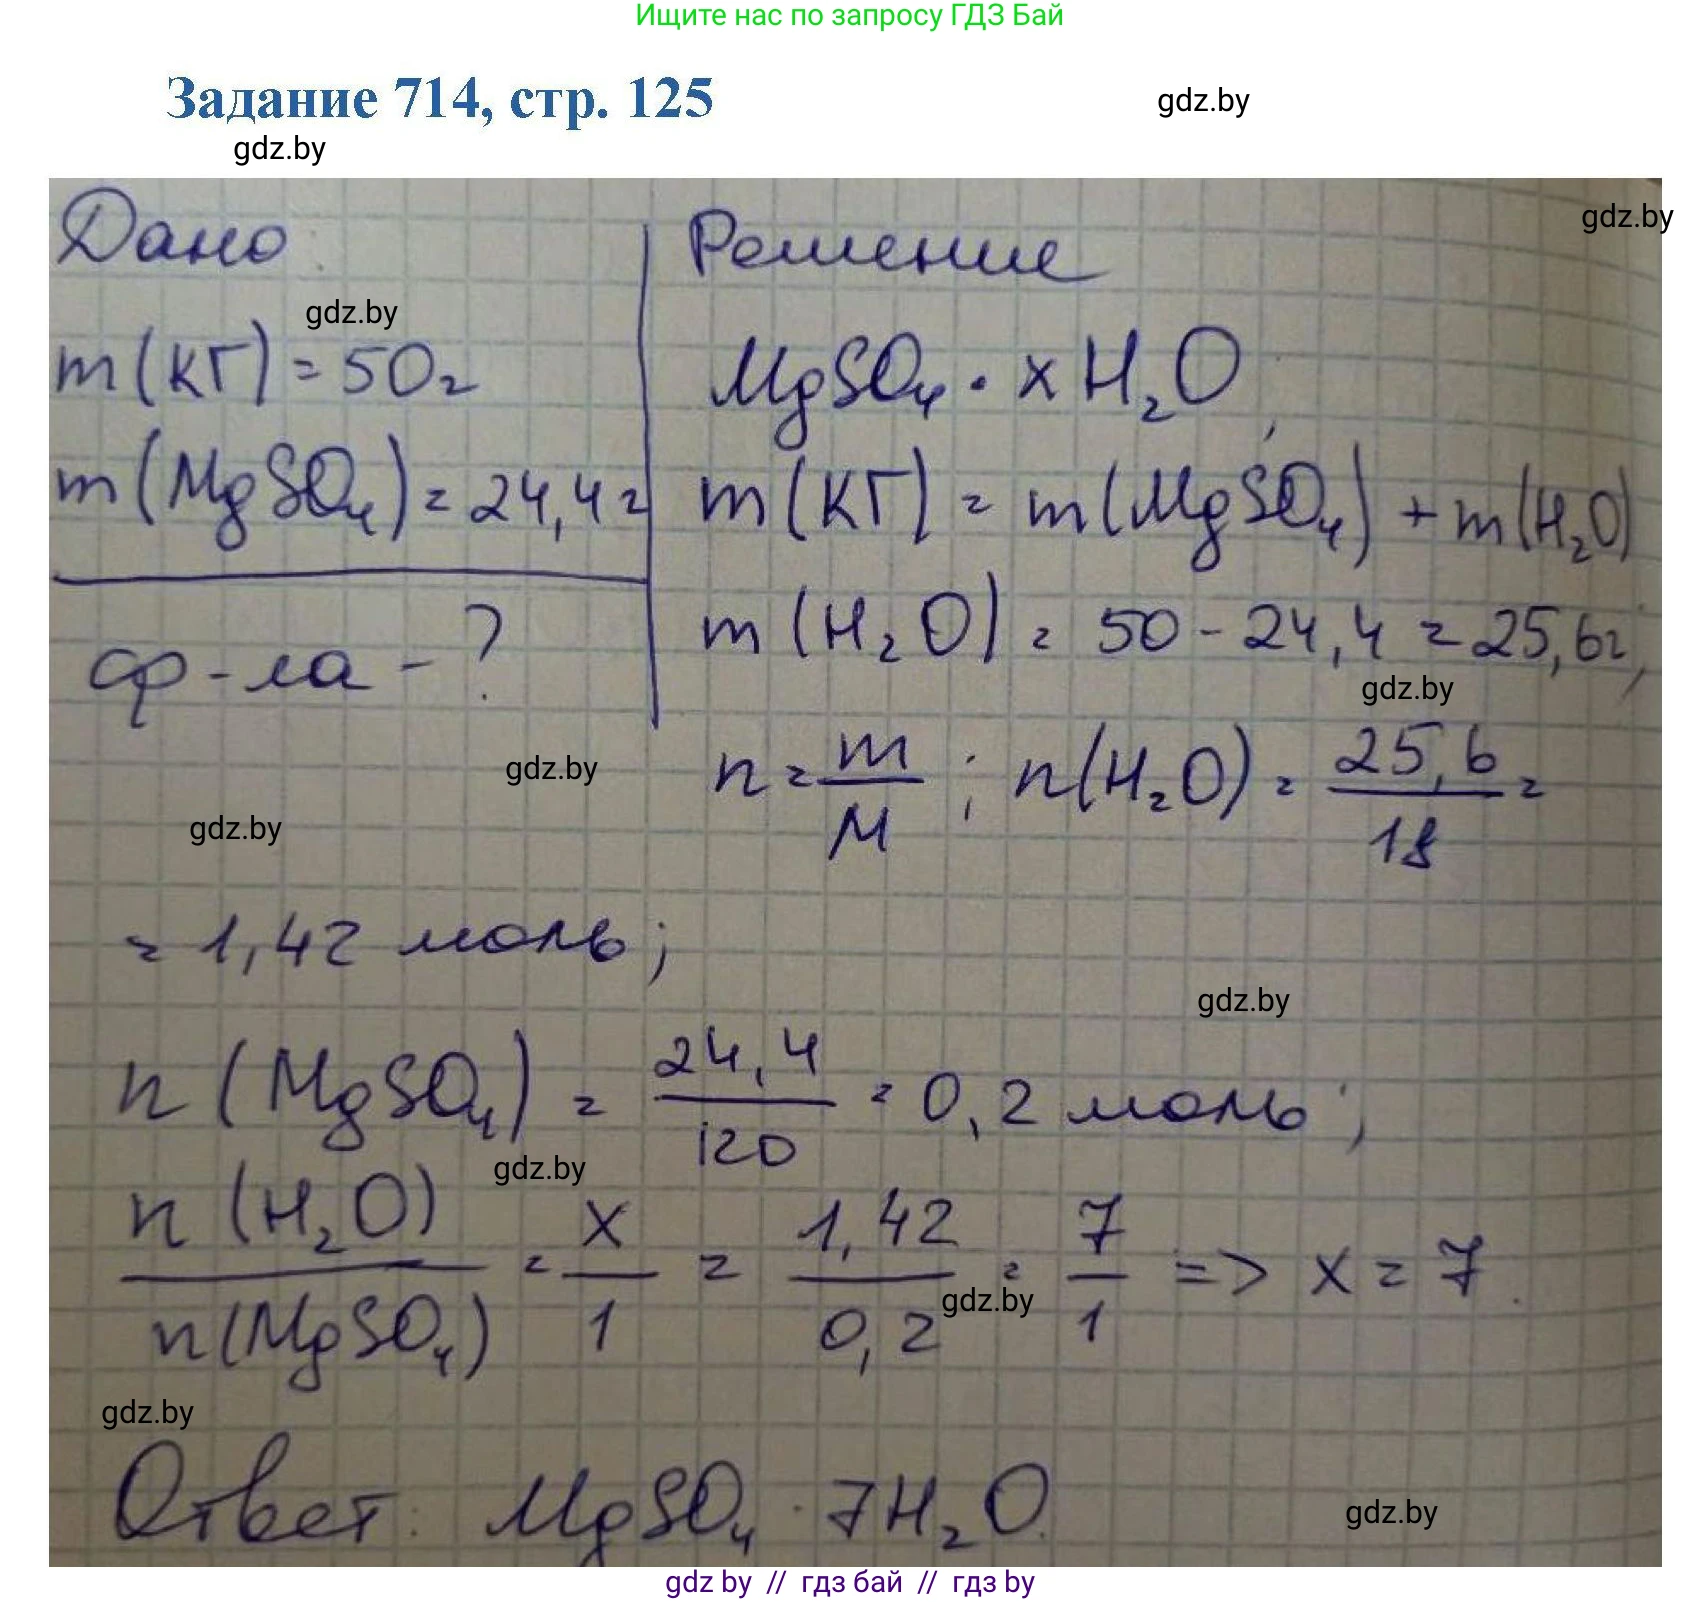 Ищите нас по запросу ГДЗ Бай
Задание 714, стр. 125
gdz.by
gdz.by
Дано
Решение
gdz.by
gdz.by
m(КГ) = 50г
MgSO₄ · xH₂O;
m(MgSO₄) = 24,4г
m(КГ) = m(MgSO₄) + m(H₂O)
ф-ла - ?
m(H₂O) = 50 - 24,4 = 25,6г;
gdz.by
n = m/M ; n(H₂O) = 25,6/18 =
gdz.by
gdz.by
= 1,42 моль;
gdz.by
n(MgSO₄) = 24,4/120 = 0,2 моль;
gdz.by
n(H₂O)/n(MgSO₄) = x/1 = 1,42/0,2 = 7/1 => x = 7.
gdz.by
gdz.by
Ответ: MgSO₄ · 7H₂O.
gdz.by
gdz by // гдз бай // гдз by